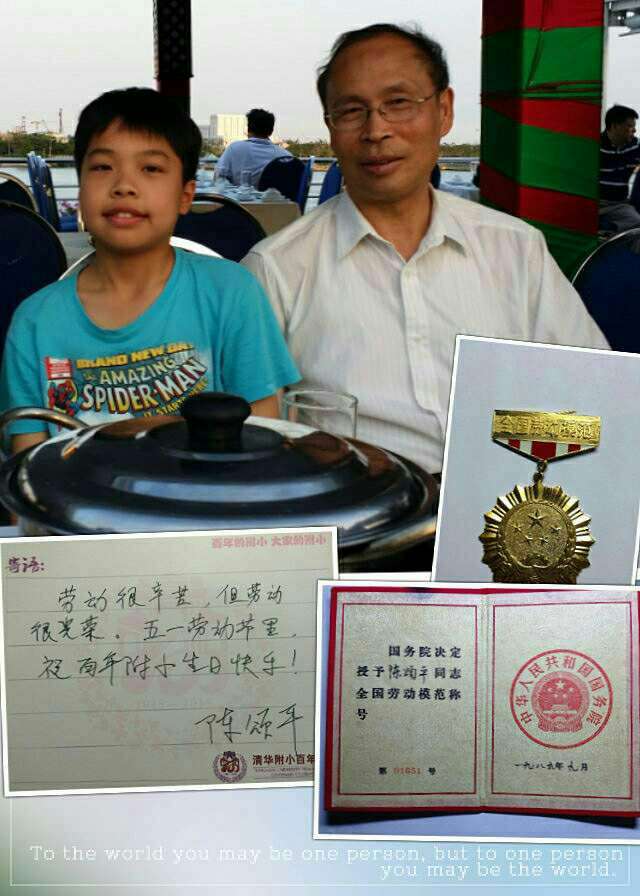 BRAND NEW DA
AMAZING
SPIDER-MAN
全国劳动模范
百年的附小 大家的附小
寄语:
劳动很辛苦，但劳动
很光荣。五一劳动节里，
祝百年附小生日快乐！
陈颂平
清华附小百年
国务院决定
授予陈颂平同志
全国劳动模范称
号
第 01651 号
中华人民共和国国务院
一九八 年九月
To the world you may be one person, but to one person
you may be the world.